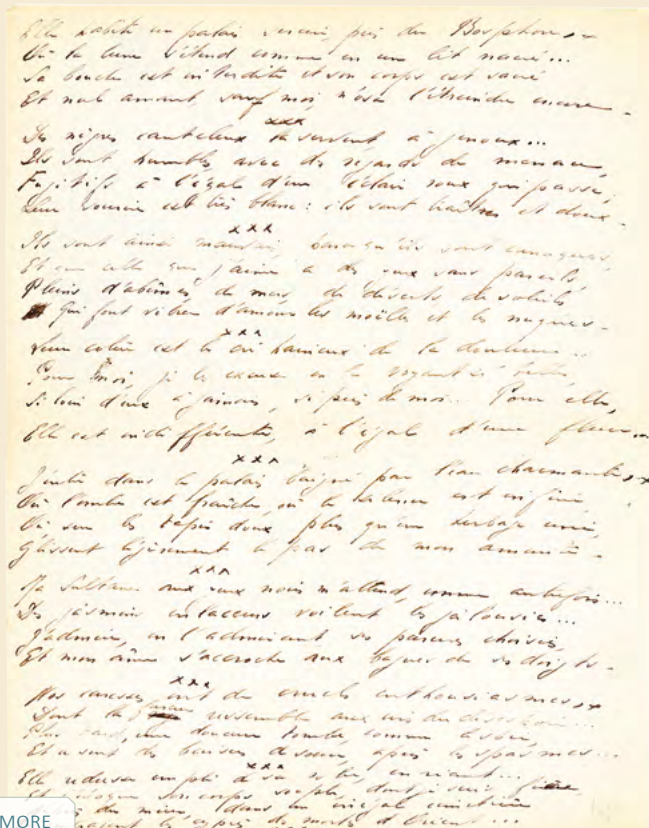 Elle habite un palais ancien, près du Bosphore,..
Où la lune s'étend comme en un lit nacré...
Sa bouche est interdite et son corps est sacré
Et nul amant, sauf moi, n'osa l'étreindre encore.
xxx
Des nègres cauteleux la servent à genoux...
Ils sont humbles, avec des regards de menace,
Fugitifs à l'égal d'un éclair roux qui passe,
Leur sourire est très blanc : ils sont traîtres et doux.
xxx
Ils sont ainsi mauvais, parce qu'ils sont eunuques,
Et que celle que j'aime a des yeux sans pareils,
Pleins d'abîmes, de mers, de déserts, de soleils
Qui font vibrer d'amour les moëlles et les nuques.
xxx
Leur colère est le cri haineux de la douleur...
Pour Moi, je les excuse en la voyant si belle,
Si loin d'eux à jamais, si près de moi... Pour elle,
Elle est indifférente, à l'égal d'une fleur...
xxx
J'entre dans le palais baigné par l'eau charmante,..
Où l'ombre est fraîche, où le silence est infini,
Où sur les tapis doux plus qu'un herbage uni,
Glissent légèrement les pas de mon amante.
xxx
Ma Sultane aux yeux noirs m'attend, comme autrefois...
Des jasmins enlaceurs voilent les jalousies...
J'admire, en l'admirant ses parures choisies,
Et mon âme s'accroche aux bagues de ses doigts.
xxx
Nos caresses ont de cruels enthousiasmes,..
Dont la fureur ressemble aux cris du désespoir...
Plus tard, une douceur tombe, comme le soir,
Et ce sont des baisers de soeur, après les spasmes...
xxx
Elle redresse un pli de sa robe, en riant...
Et j'évoque son corps souple, dont je suis fière,
du mien, dans un inégal cimetière
les cyprès de morts d'Orient...
MORE